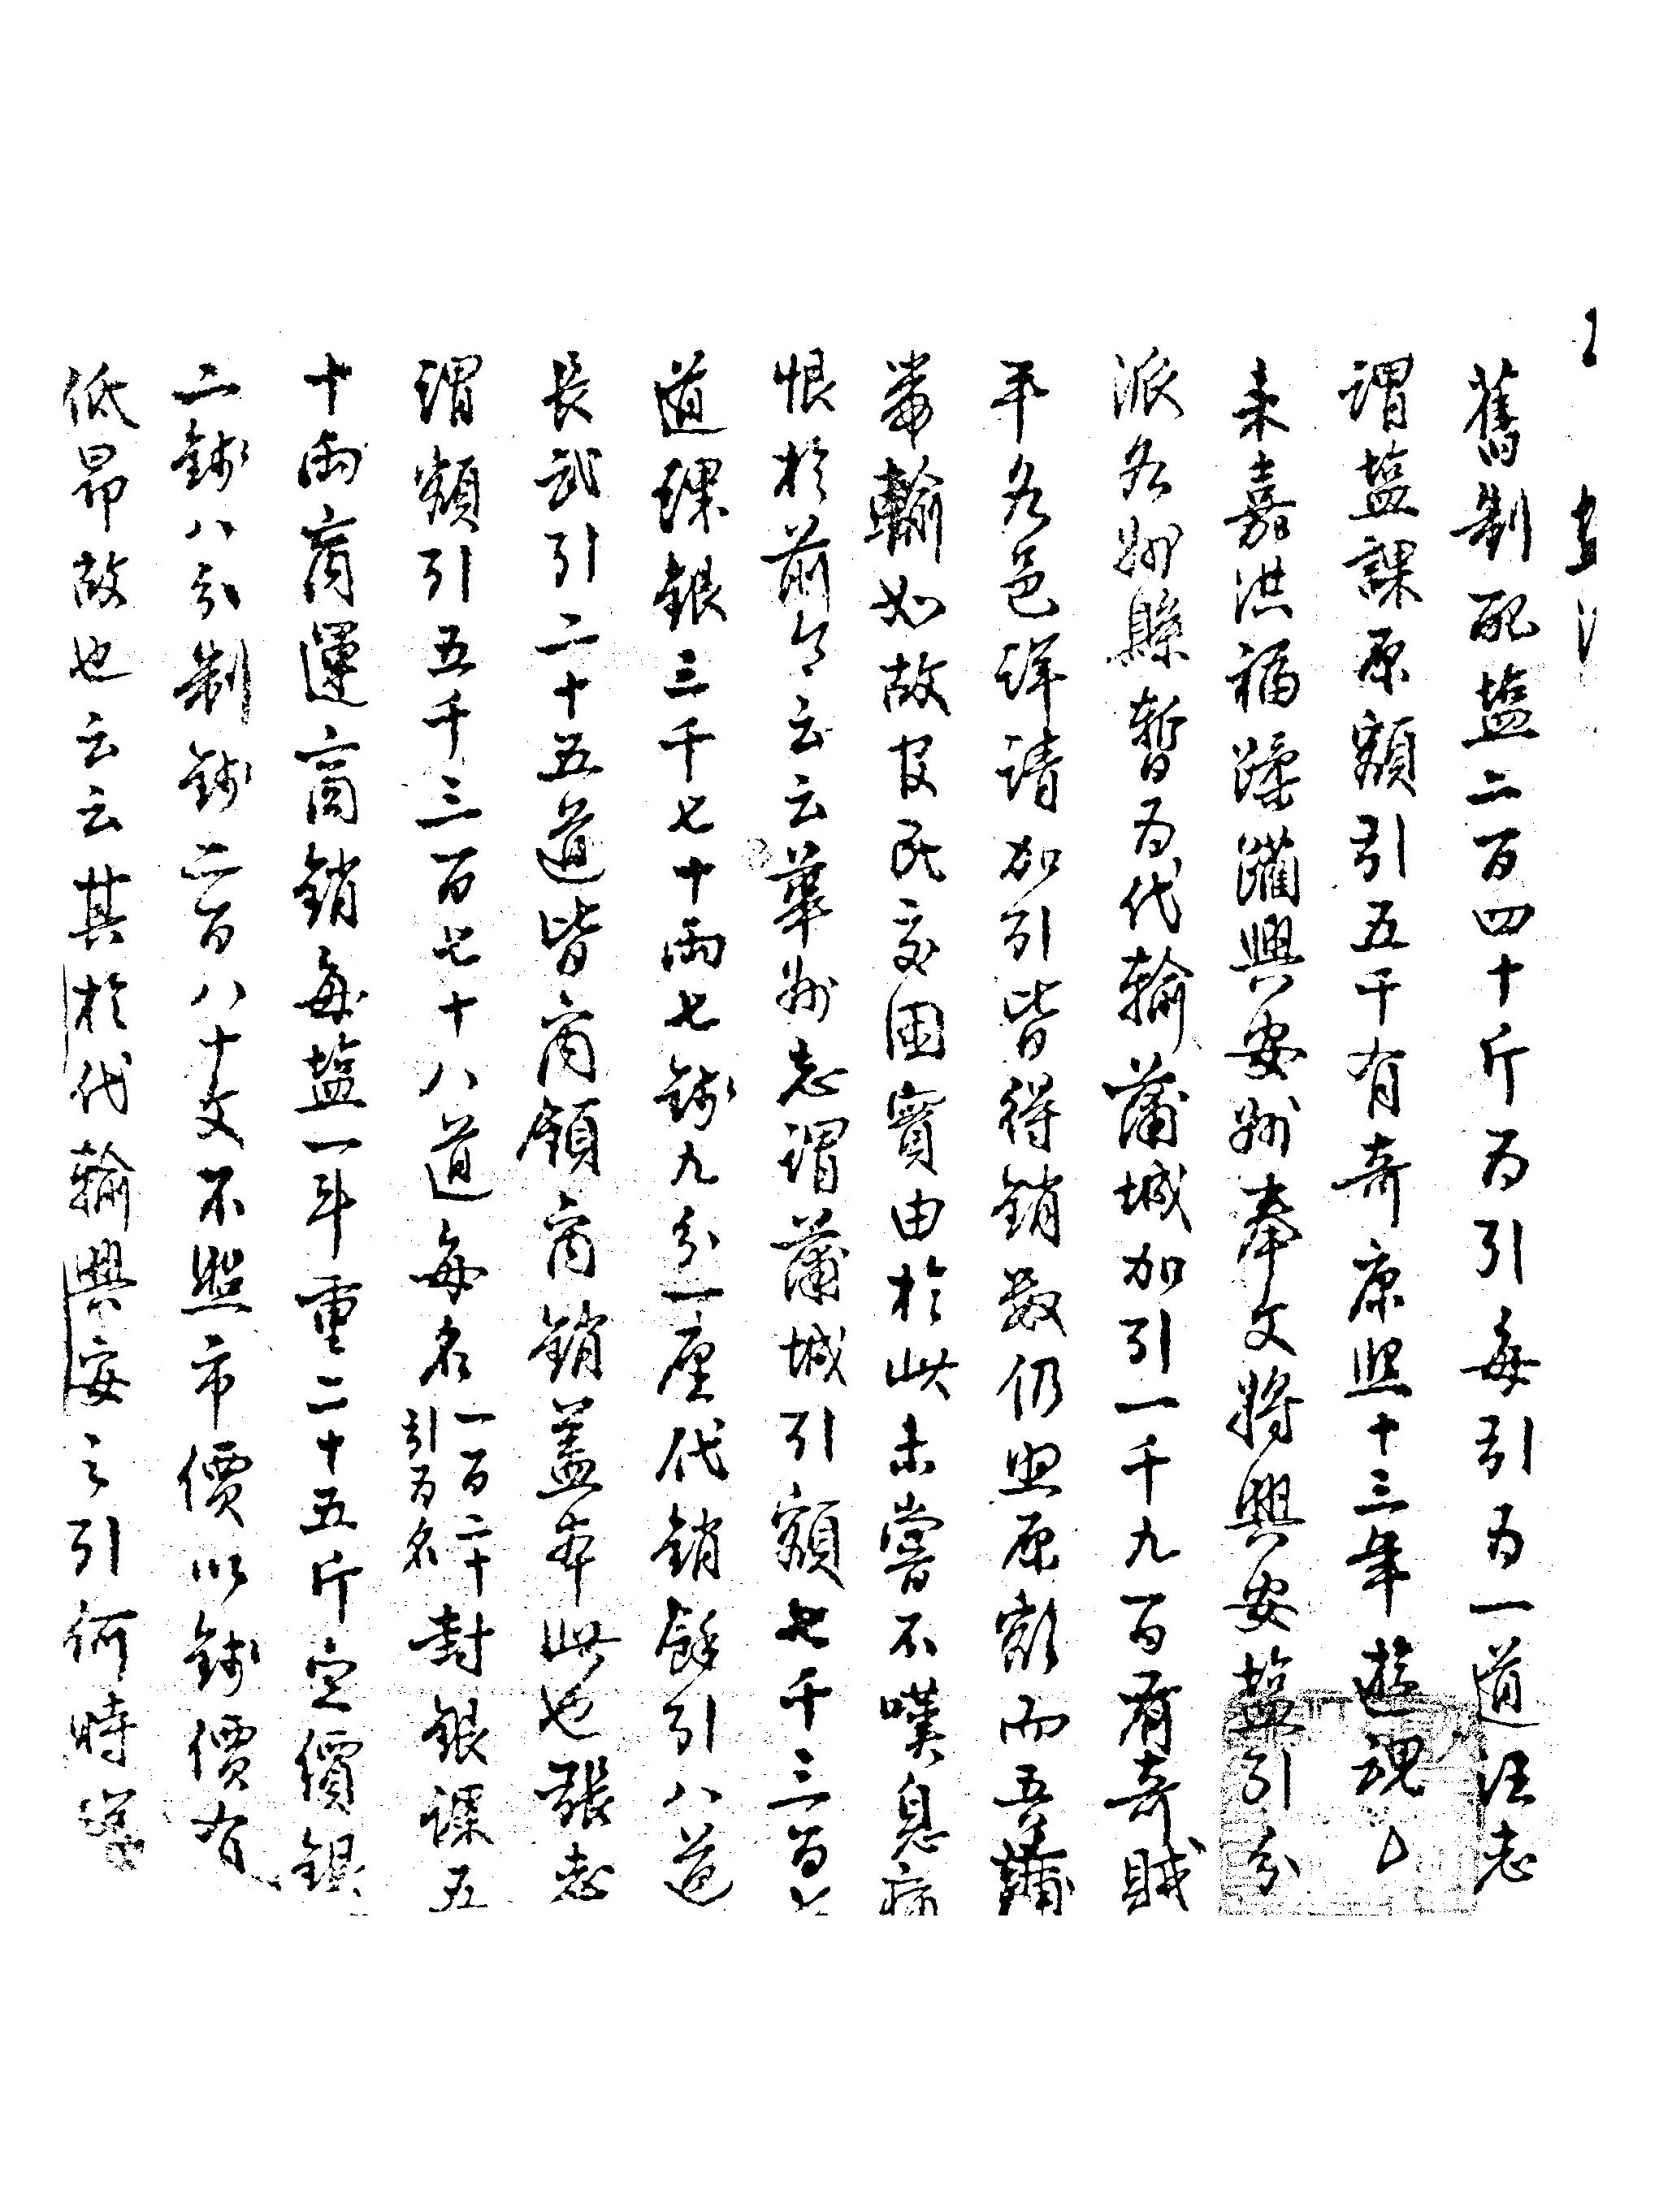 舊制配塩二百四十斤为引每引为一道汪志
謂塩課原額引五千有奇康熙十三年遊魂
未嘉洪福蹂躪興安州奉文將興安塩引分
派各州縣暫为代輸蒲城加引一千九百有奇賊
平各邑詳請加引皆得銷数仍照原額而吾蒲
带輸如故官民交困實由於此未嘗不嘆息痛
恨於前令云云華州志謂蒲城引額七千三百七
道課銀三千七十兩七錢九分一厘代銷餘引八道
長武引二十五道皆商領商銷盖本此也張志
謂額引五千三百七十八道每名一百二十引为名封銀課五
十兩商運商銷每塩一斗重二十五斤定價銀
二錢八分制錢二百八十文不照市價以錢價有
低昂故也云云其於代輸興安之引何時